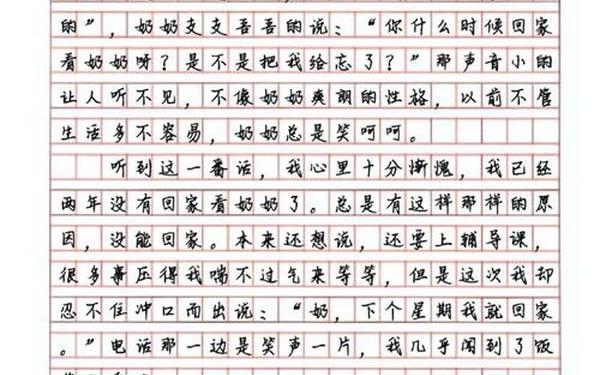 的”，奶奶支支吾吾的说：“你什么时候回家
看奶奶呀？是不是把我给忘了？”那声音小的
让人听不见，不像奶奶爽朗的性格，以前不管
生活多不容易，奶奶总是笑呵呵。
听到这一番话，我心里十分惭愧，我已经
两年没有回家看奶奶了。总是有这样那样的原
因，没能回家。本来还想说，还要上辅导课，
很多事压得我喘不过气来等等，但是这次我却
忍不住冲口而出说：“奶，下个星期我就回家
。”电话那一边是笑声一片，我几乎闻到了饭